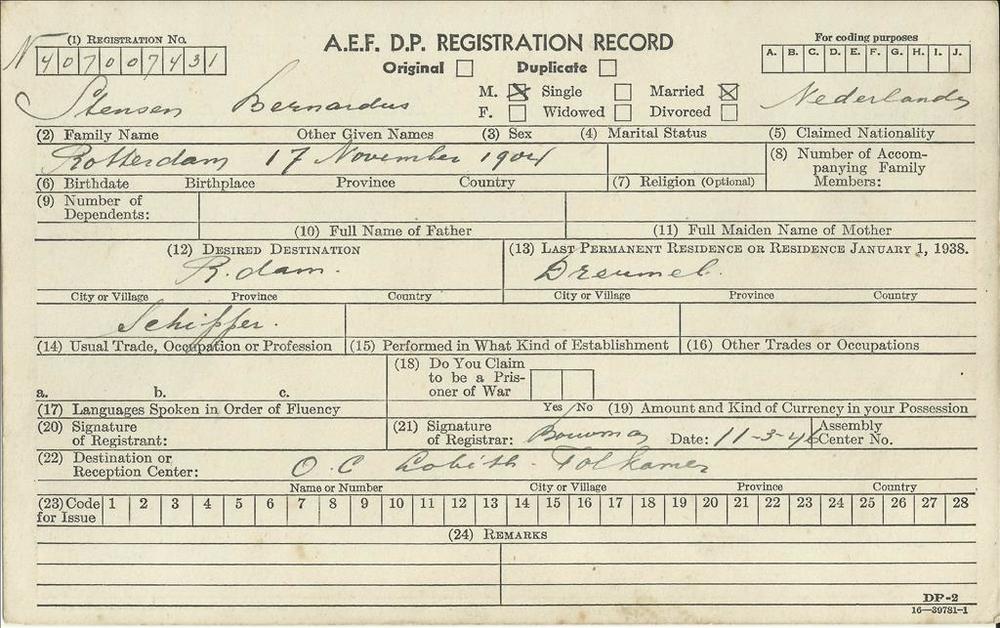 (1) REGISTRATION No.
N 407007431
A.E.F. D.P. REGISTRATION RECORD
Original Duplicate
For coding purposes
A. B. C. D. E. F. G. H. I. J.
M. Single Married
F. Widowed Divorced
Stensen Bernardus Nederlands
(2) Family Name Other Given Names (3) Sex (4) Marital Status (5) Claimed Nationality
Rotterdam 17 November 1904
(6) Birthdate Birthplace Province Country
(7) Religion (Optional)
(8) Number of Accom-
panying Family
Members:
(9) Number of
Dependents:
(10) Full Name of Father
(11) Full Maiden Name of Mother
(12) DESIRED DESTINATION
(13) LAST PERMANENT RESIDENCE OR RESIDENCE JANUARY 1, 1938.
R.dam. Dreumel.
City or Village Province Country City or Village Province Country
Schipper.
(14) Usual Trade, Occupation or Profession (15) Performed in What Kind of Establishment (16) Other Trades or Occupations
a. b. c.
(17) Languages Spoken in Order of Fluency
(18) Do You Claim
to be a Pris-
oner of War
Yes No
(19) Amount and Kind of Currency in your Possession
(20) Signature
of Registrant:
(21) Signature
of Registrar: Bouwman Date: 11-3-46
Assembly
Center No.
(22) Destination or
Reception Center:
O.C Lobith-Tolkamer
Name or Number City or Village Province Country
(23) Code
for Issue
1 2 3 4 5 6 7 8 9 10 11 12 13 14 15 16 17 18 19 20 21 22 23 24 25 26 27 28
(24) REMARKS
DP-2
16—39781-1